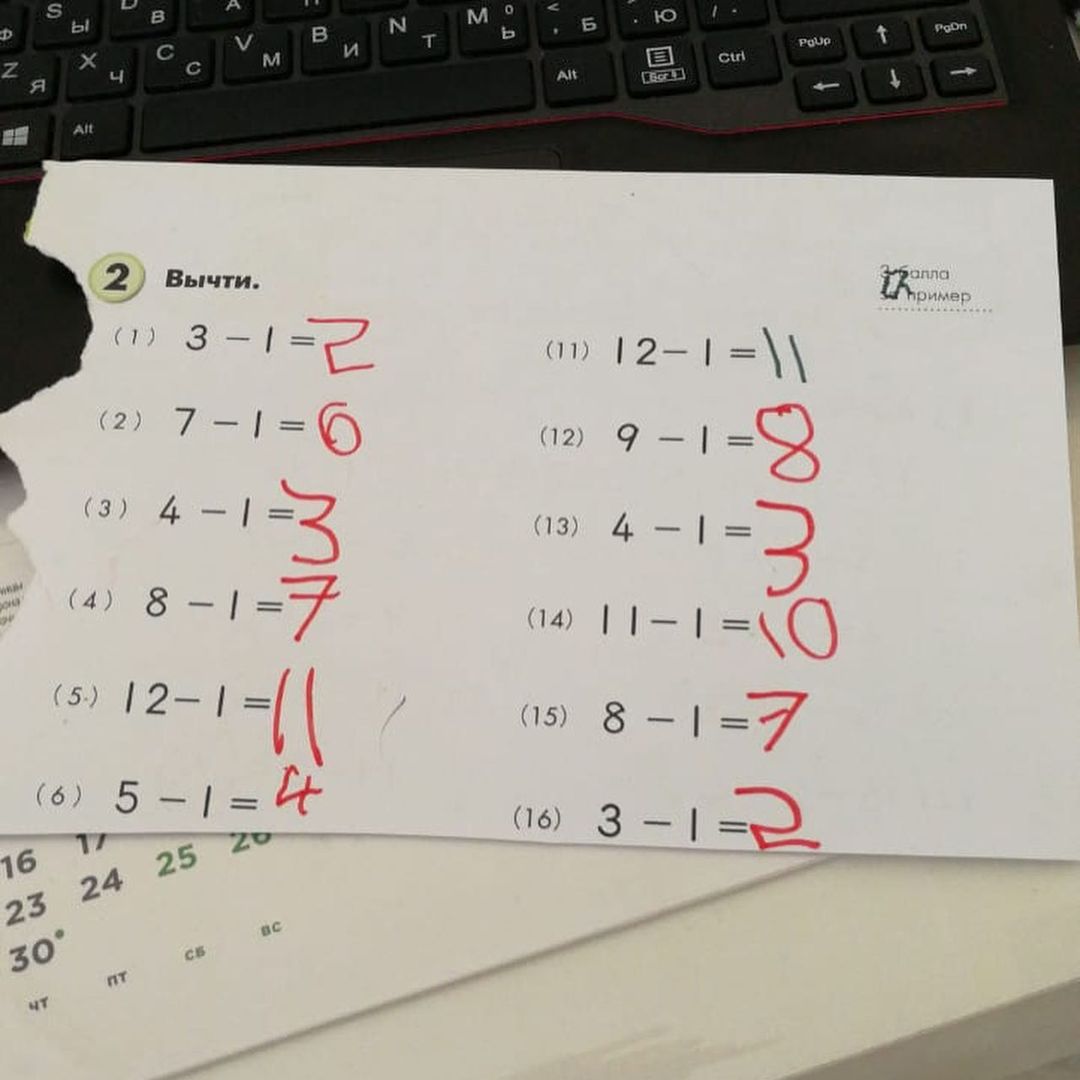 S Ы В А
Z Я X Ч C С V М B И N Т M Ь < , Б . Ю / .
Alt Alt Ctrl PgUp ↑ PgDn
← ↓ →
2 Вычти.
балла
пример
(1) 3 – 1 = 2
(2) 7 – 1 = 6
(3) 4 – 1 = 3
(4) 8 – 1 = 7
(5) 12 – 1 = 11
(6) 5 – 1 = 4
(11) 12 – 1 = 11
(12) 9 – 1 = 8
(13) 4 – 1 = 3
(14) 11 – 1 = 10
(15) 8 – 1 = 7
(16) 3 – 1 = 2
16 17
23 24 25 26
30
чт пт сб вс